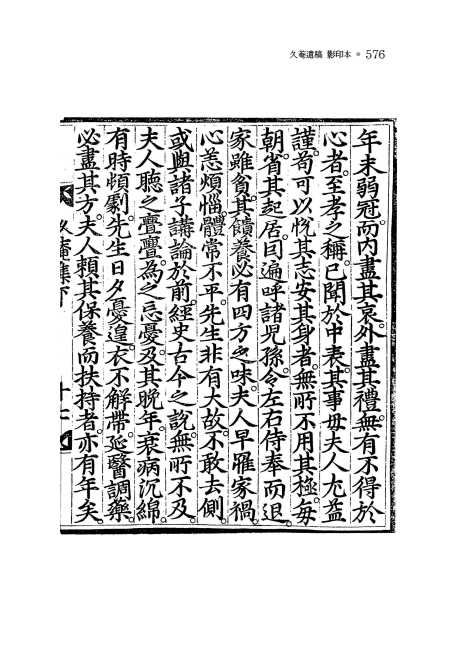 久菴遺稿 影印本 ● 576
年未弱冠。而內盡其哀。外盡其禮。無有不得於
心者。至孝之稱。已聞於中表。其事母夫人尤益
謹。苟可以悅其志安其身者。無所不用其極。每
朝。省其起居。因遍呼諸兒孫。令左右侍奉而退。
家雖貧。其饋養必有四方之味。夫人早罹家禍。
心恙煩惱。體常不平。先生非有大故。不敢去側。
或與諸子講論於前。經史古今之說。無所不及。
夫人聽之亹亹。爲之忘憂。及其晩年。衰病沉綿。
有時煩劇。先生日夕憂遑。衣不解帶。延醫調藥。
必盡其方。夫人賴其保養而扶持者。亦有年矣。
久菴集下
十七